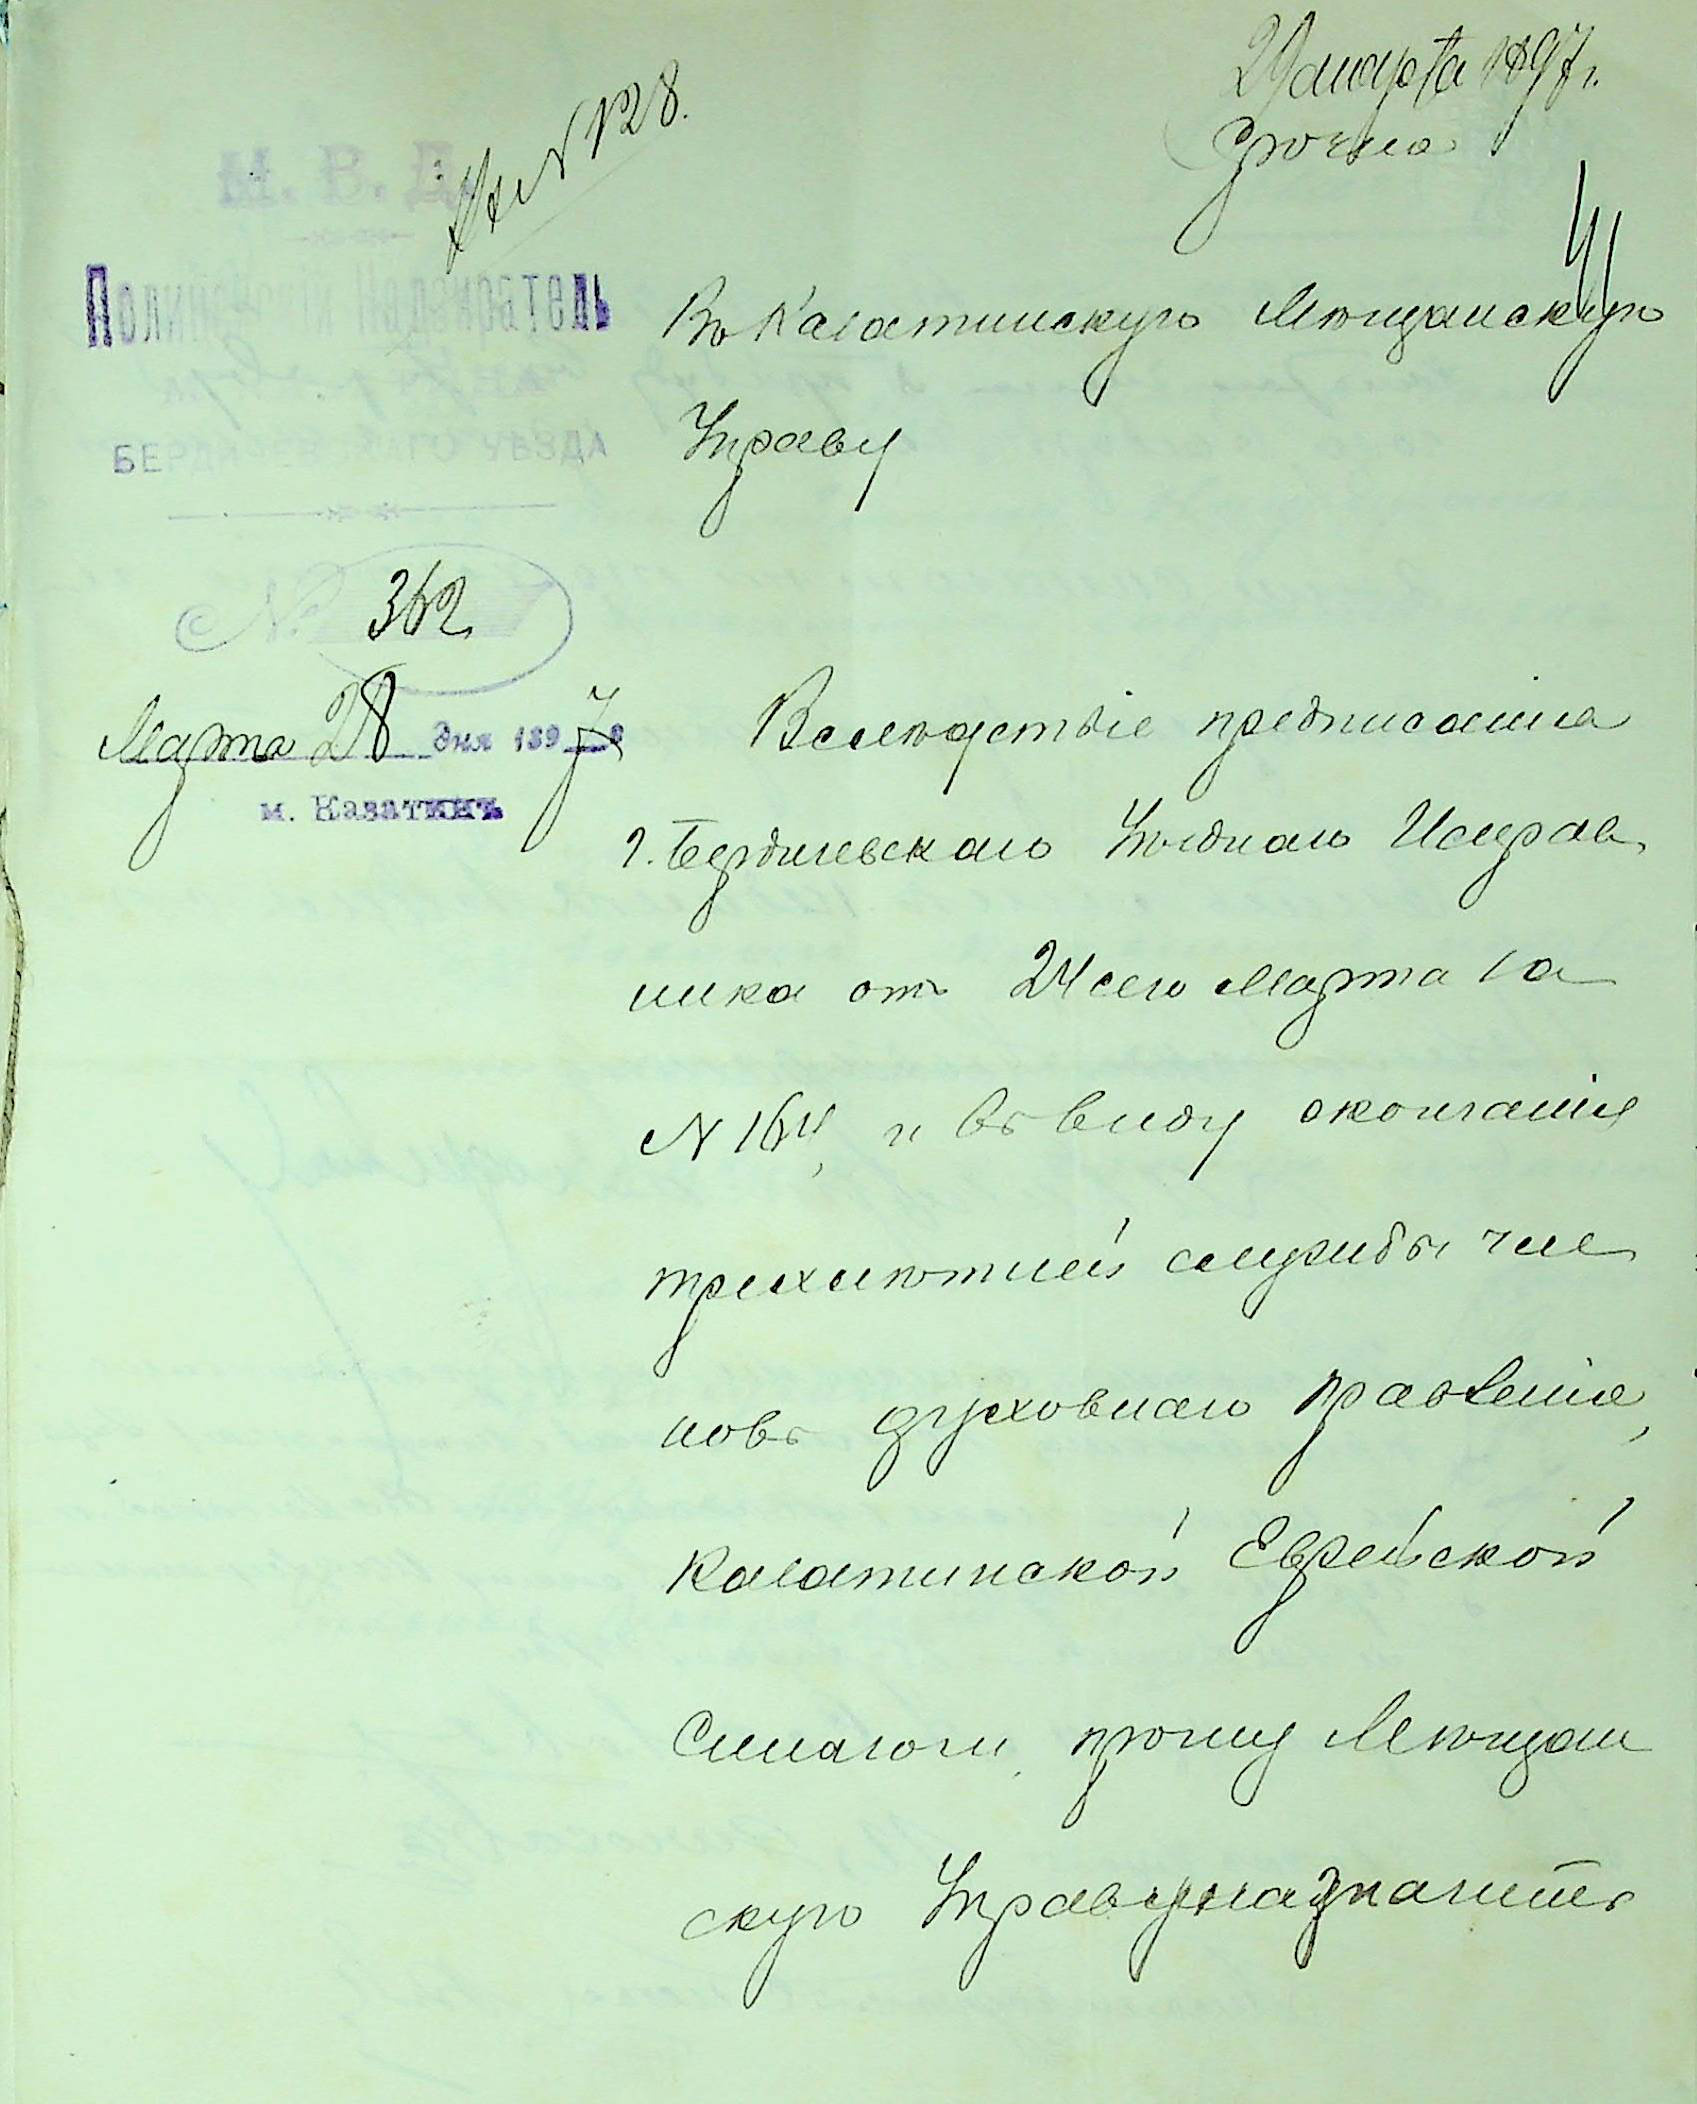 29 марта 1897 г.
Срочно
Вх N 128.
М. В. Д.
Полицейскій Надзиратель
БЕРДИЧЕВСКАГО УѢЗДА
№ 362
Марта 28 дня 1897
м. Казатинъ
4
Въ Казатинскую Мѣщанскую
Управу
Вслѣдствіе предписанія
г. Бердичевскаго Уѣзднаго Исправ
ника отъ 24 сего Марта за
N 164, и въ виду окончанія
трехлѣтней службы чле
новъ духовнаго правленія
Казатинской Еврейской
Синагоги, прошу Мѣщан
скую Управу назначить